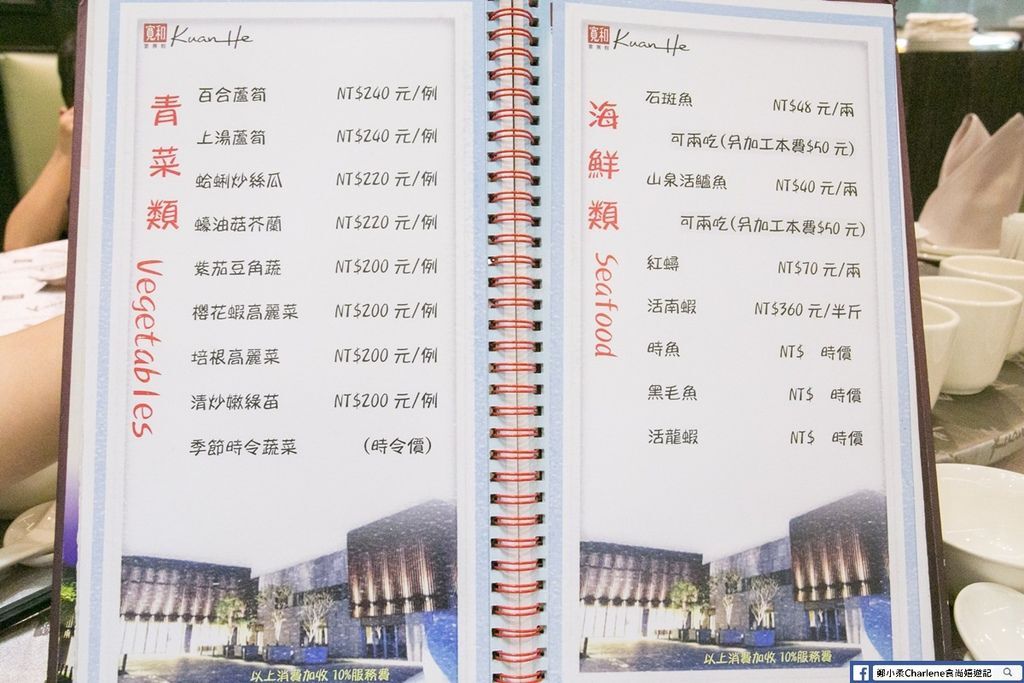 寬和
宴展館
KuanHe
青菜類
Vegetables
百合蘆筍 NT$240 元/例
上湯蘆筍 NT$240 元/例
蛤蜊炒絲瓜 NT$220 元/例
蠔油菇芥蘭 NT$220 元/例
紫茄豆角蔬 NT$200 元/例
櫻花蝦高麗菜 NT$200 元/例
培根高麗菜 NT$200 元/例
清炒嫩綠苗 NT$200 元/例
季節時令蔬菜 (時令價)
以上消費加收 10%服務費
寬和
宴展館
KuanHe
海鮮類
Seafood
石斑魚 NT$48 元/兩
可兩吃(另加工本費$50 元)
山泉活鱸魚 NT$40 元/兩
可兩吃(另加工本費$50 元)
紅蟳 NT$70 元/兩
活南蝦 NT$360 元/半斤
時魚 NT$ 時價
黑毛魚 NT$ 時價
活龍蝦 NT$ 時價
以上消費加收 10%服務費
f 鄭小柔Charlene食尚嬉遊記